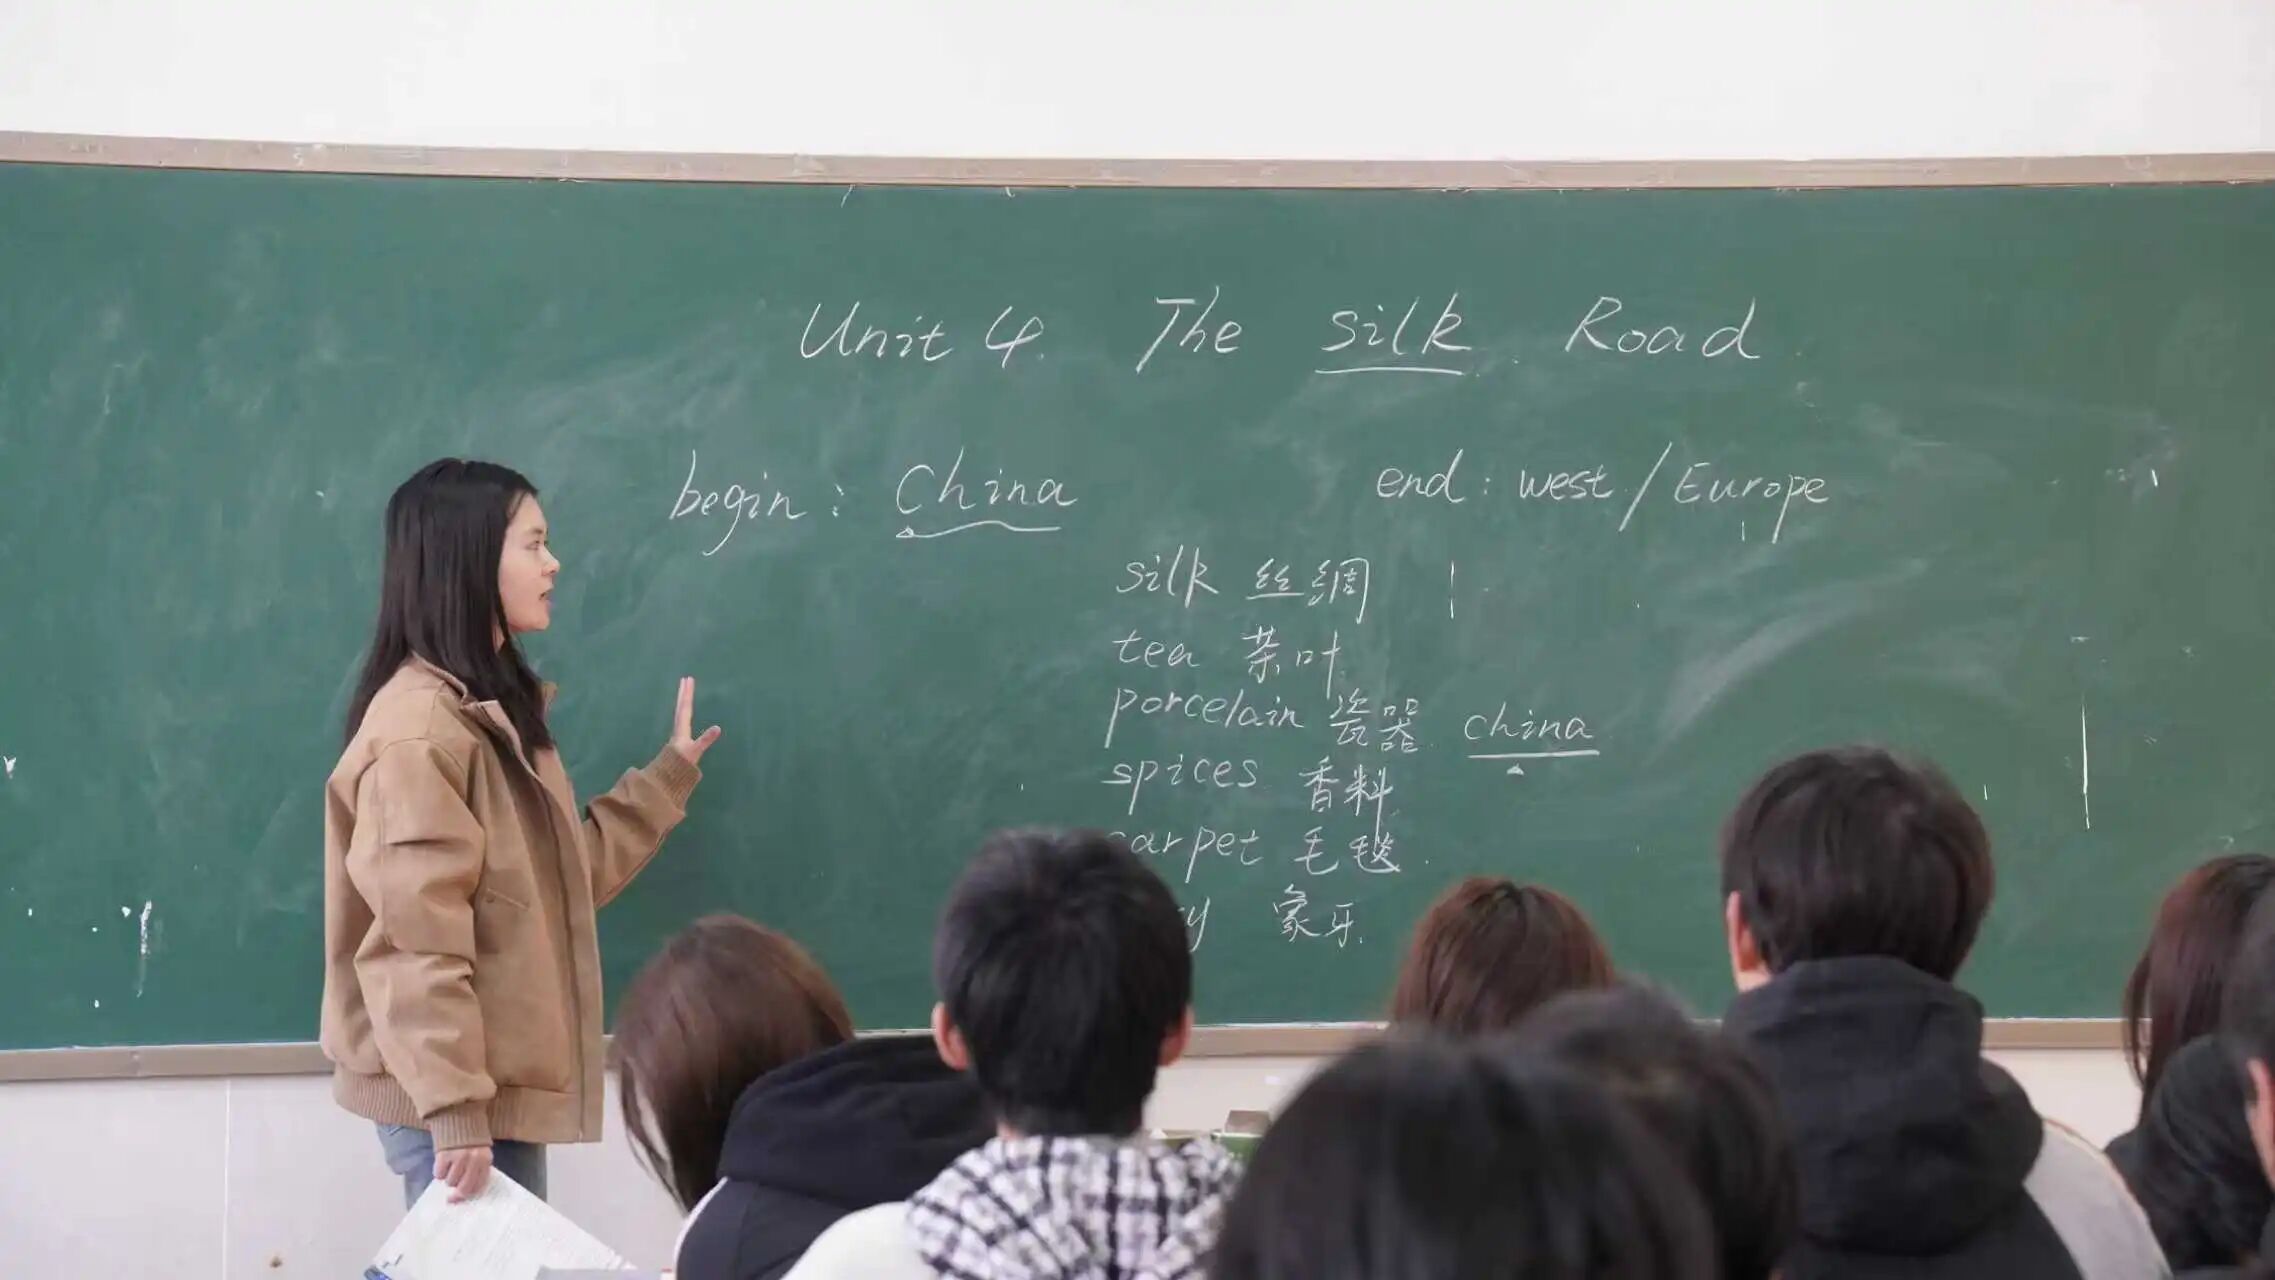 Unit 4 The Silk Road
begin: China end: west / Europe
silk 丝綢
tea 茶叶
porcelain 瓷器 china
spices 香料
carpet 毛毯
象牙